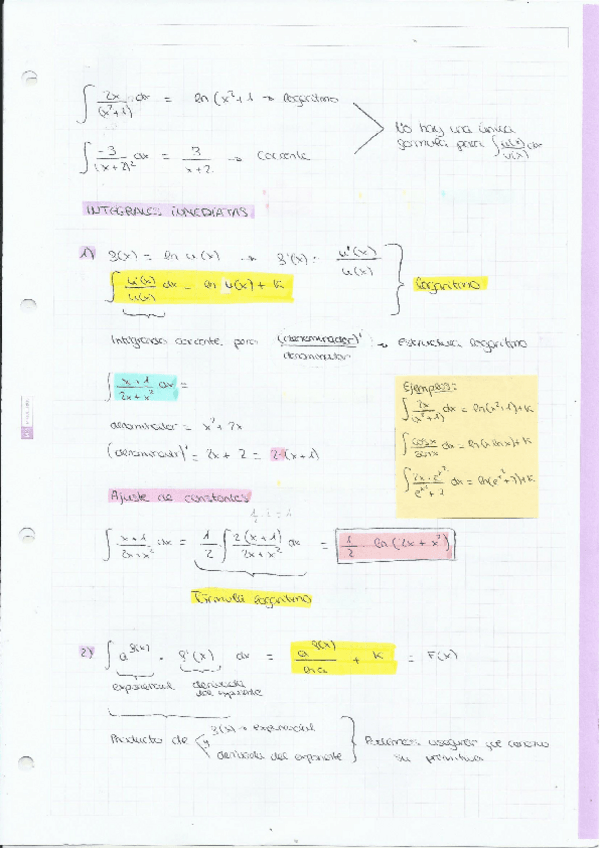 ∫ 2x/(x²+1) dx = ln(x²+1 → logaritmo
∫ -3/(x+2)² dx = 3/x+2 → cociente
No hay una única
formula para ∫ u(x)/v(x) dx
INTEGRALES INMEDIATAS
1) g(x) = ln u(x) → g'(x) = u'(x)/u(x)
∫ u'(x)/u(x) dx = ln u(x) + K
logaritmo
Integrando cociente pero (denominador)'/denominador → estructura logaritmo
∫ x+1/2x+x² dx =
denominador = x² + 2x
(denominador)' = 2x + 2 = 2·(x+1)
Ejemplos:
∫ 2x/(x²+1) dx = ln(x²+1)+K
∫ cosx/senx dx = ln(senx)+K
Ajuste de constantes
∫ x+1/2x+x² dx = 1/2 ∫ 2(x+1)/2x+x² dx = 1/2 · ln(2x+x²)
Fórmula logaritmo
2) ∫ a^g(x) · g'(x) dx = a^g(x)/ln a + K = F(x)
exponencial derivada
del exponente
Producto de g(x) → exponencial
y derivada del exponente
Podemos asegurar que conozco
su primitiva